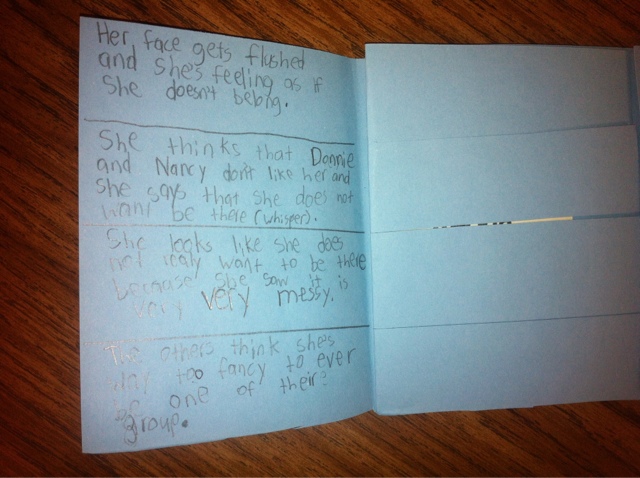 Her face gets flushed
and she's feeling as if
She doesn't belong.
She thinks that Donnie
and Nancy don't like her and
she says that she does not
want be there (whisper).
She looks like she does
not realy want to be there
because she saw it is
very very messy.
The others think she's
way too fancy to ever
be one of their?
group.